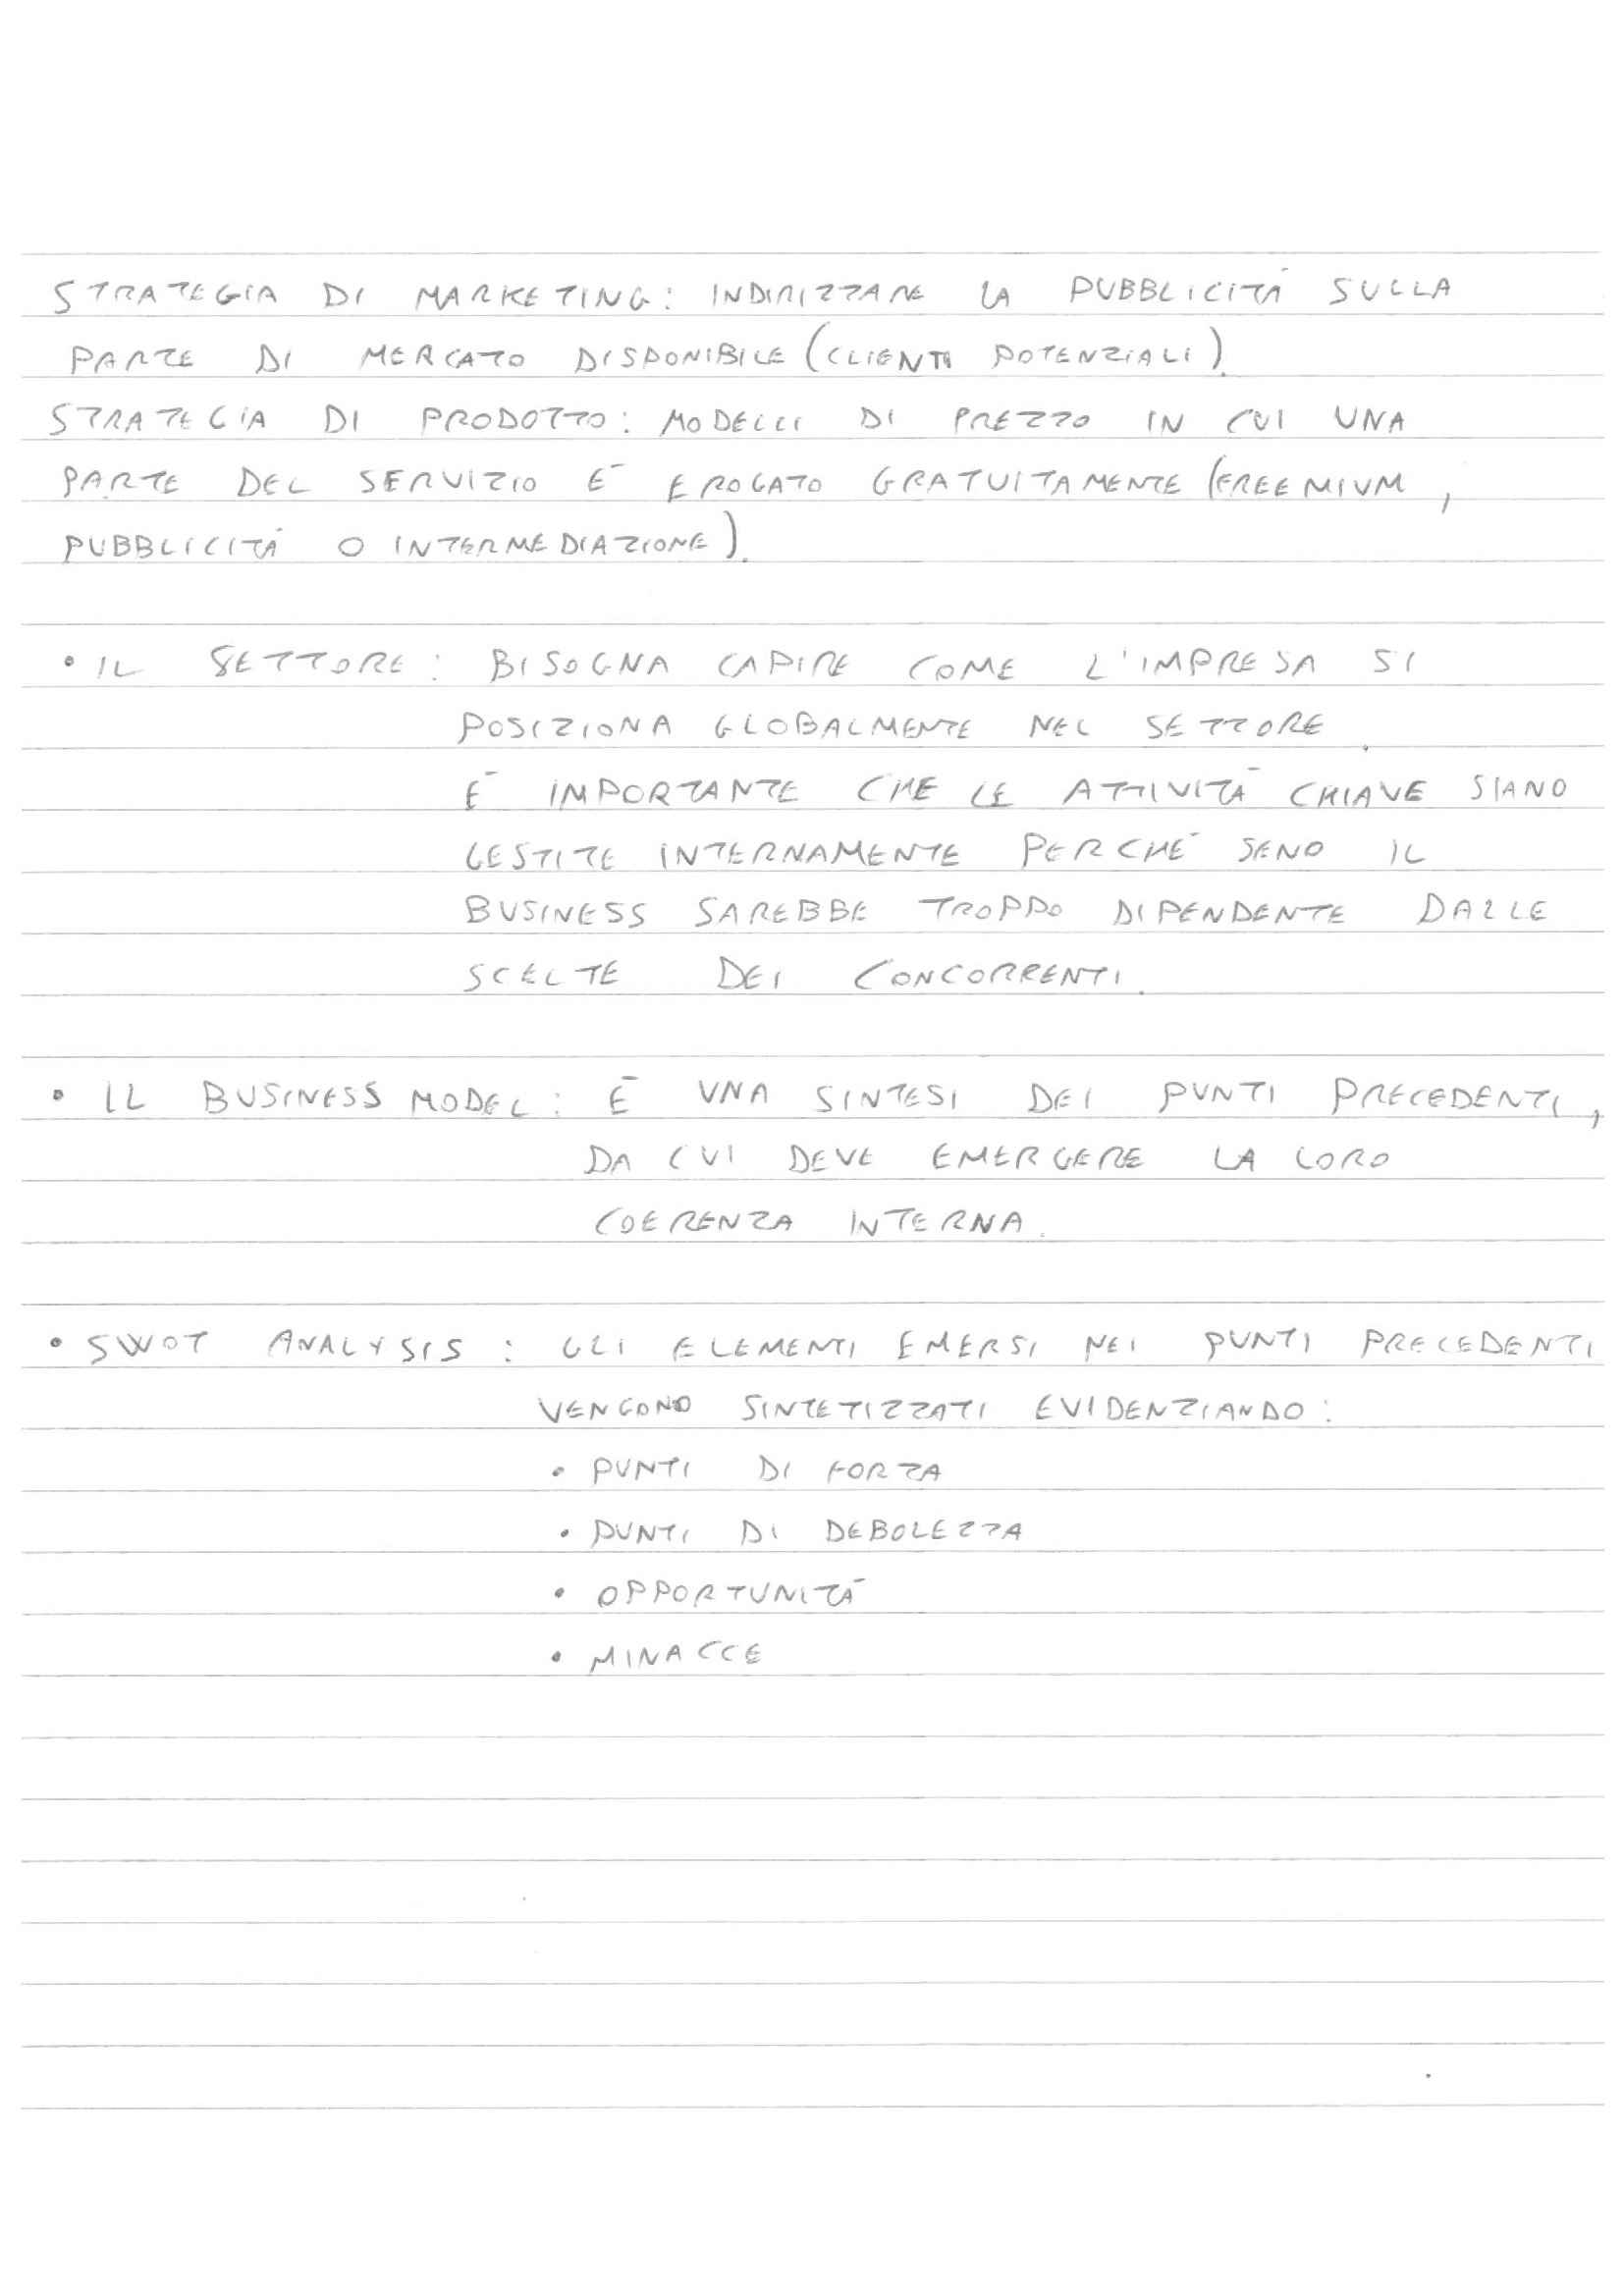 STRATEGIA DI MARKETING: INDIRIZZARE LA PUBBLICITÀ SULLA
PARTE DI MERCATO DISPONIBILE (CLIENTI POTENZIALI).
STRATEGIA DI PRODOTTO: MODELLI DI PREZZO IN CUI UNA
PARTE DEL SERVIZIO È EROGATO GRATUITAMENTE (FREEMIUM,
PUBBLICITÀ O INTERMEDIAZIONE).
• IL SETTORE: BISOGNA CAPIRE COME L'IMPRESA SI
POSIZIONA GLOBALMENTE NEL SETTORE.
È IMPORTANTE CHE LE ATTIVITÀ CHIAVE SIANO
GESTITE INTERNAMENTE PERCHÉ SENO IL
BUSINESS SAREBBE TROPPO DIPENDENTE DALLE
SCELTE DEI CONCORRENTI.
• IL BUSINESS MODEL: È UNA SINTESI DEI PUNTI PRECEDENTI,
DA CUI DEVE EMERGERE LA LORO
COERENZA INTERNA.
• SWOT ANALYSIS: GLI ELEMENTI EMERSI NEI PUNTI PRECEDENTI
VENGONO SINTETIZZATI EVIDENZIANDO:
• PUNTI DI FORZA
• PUNTI DI DEBOLEZZA
• OPPORTUNITÀ
• MINACCE